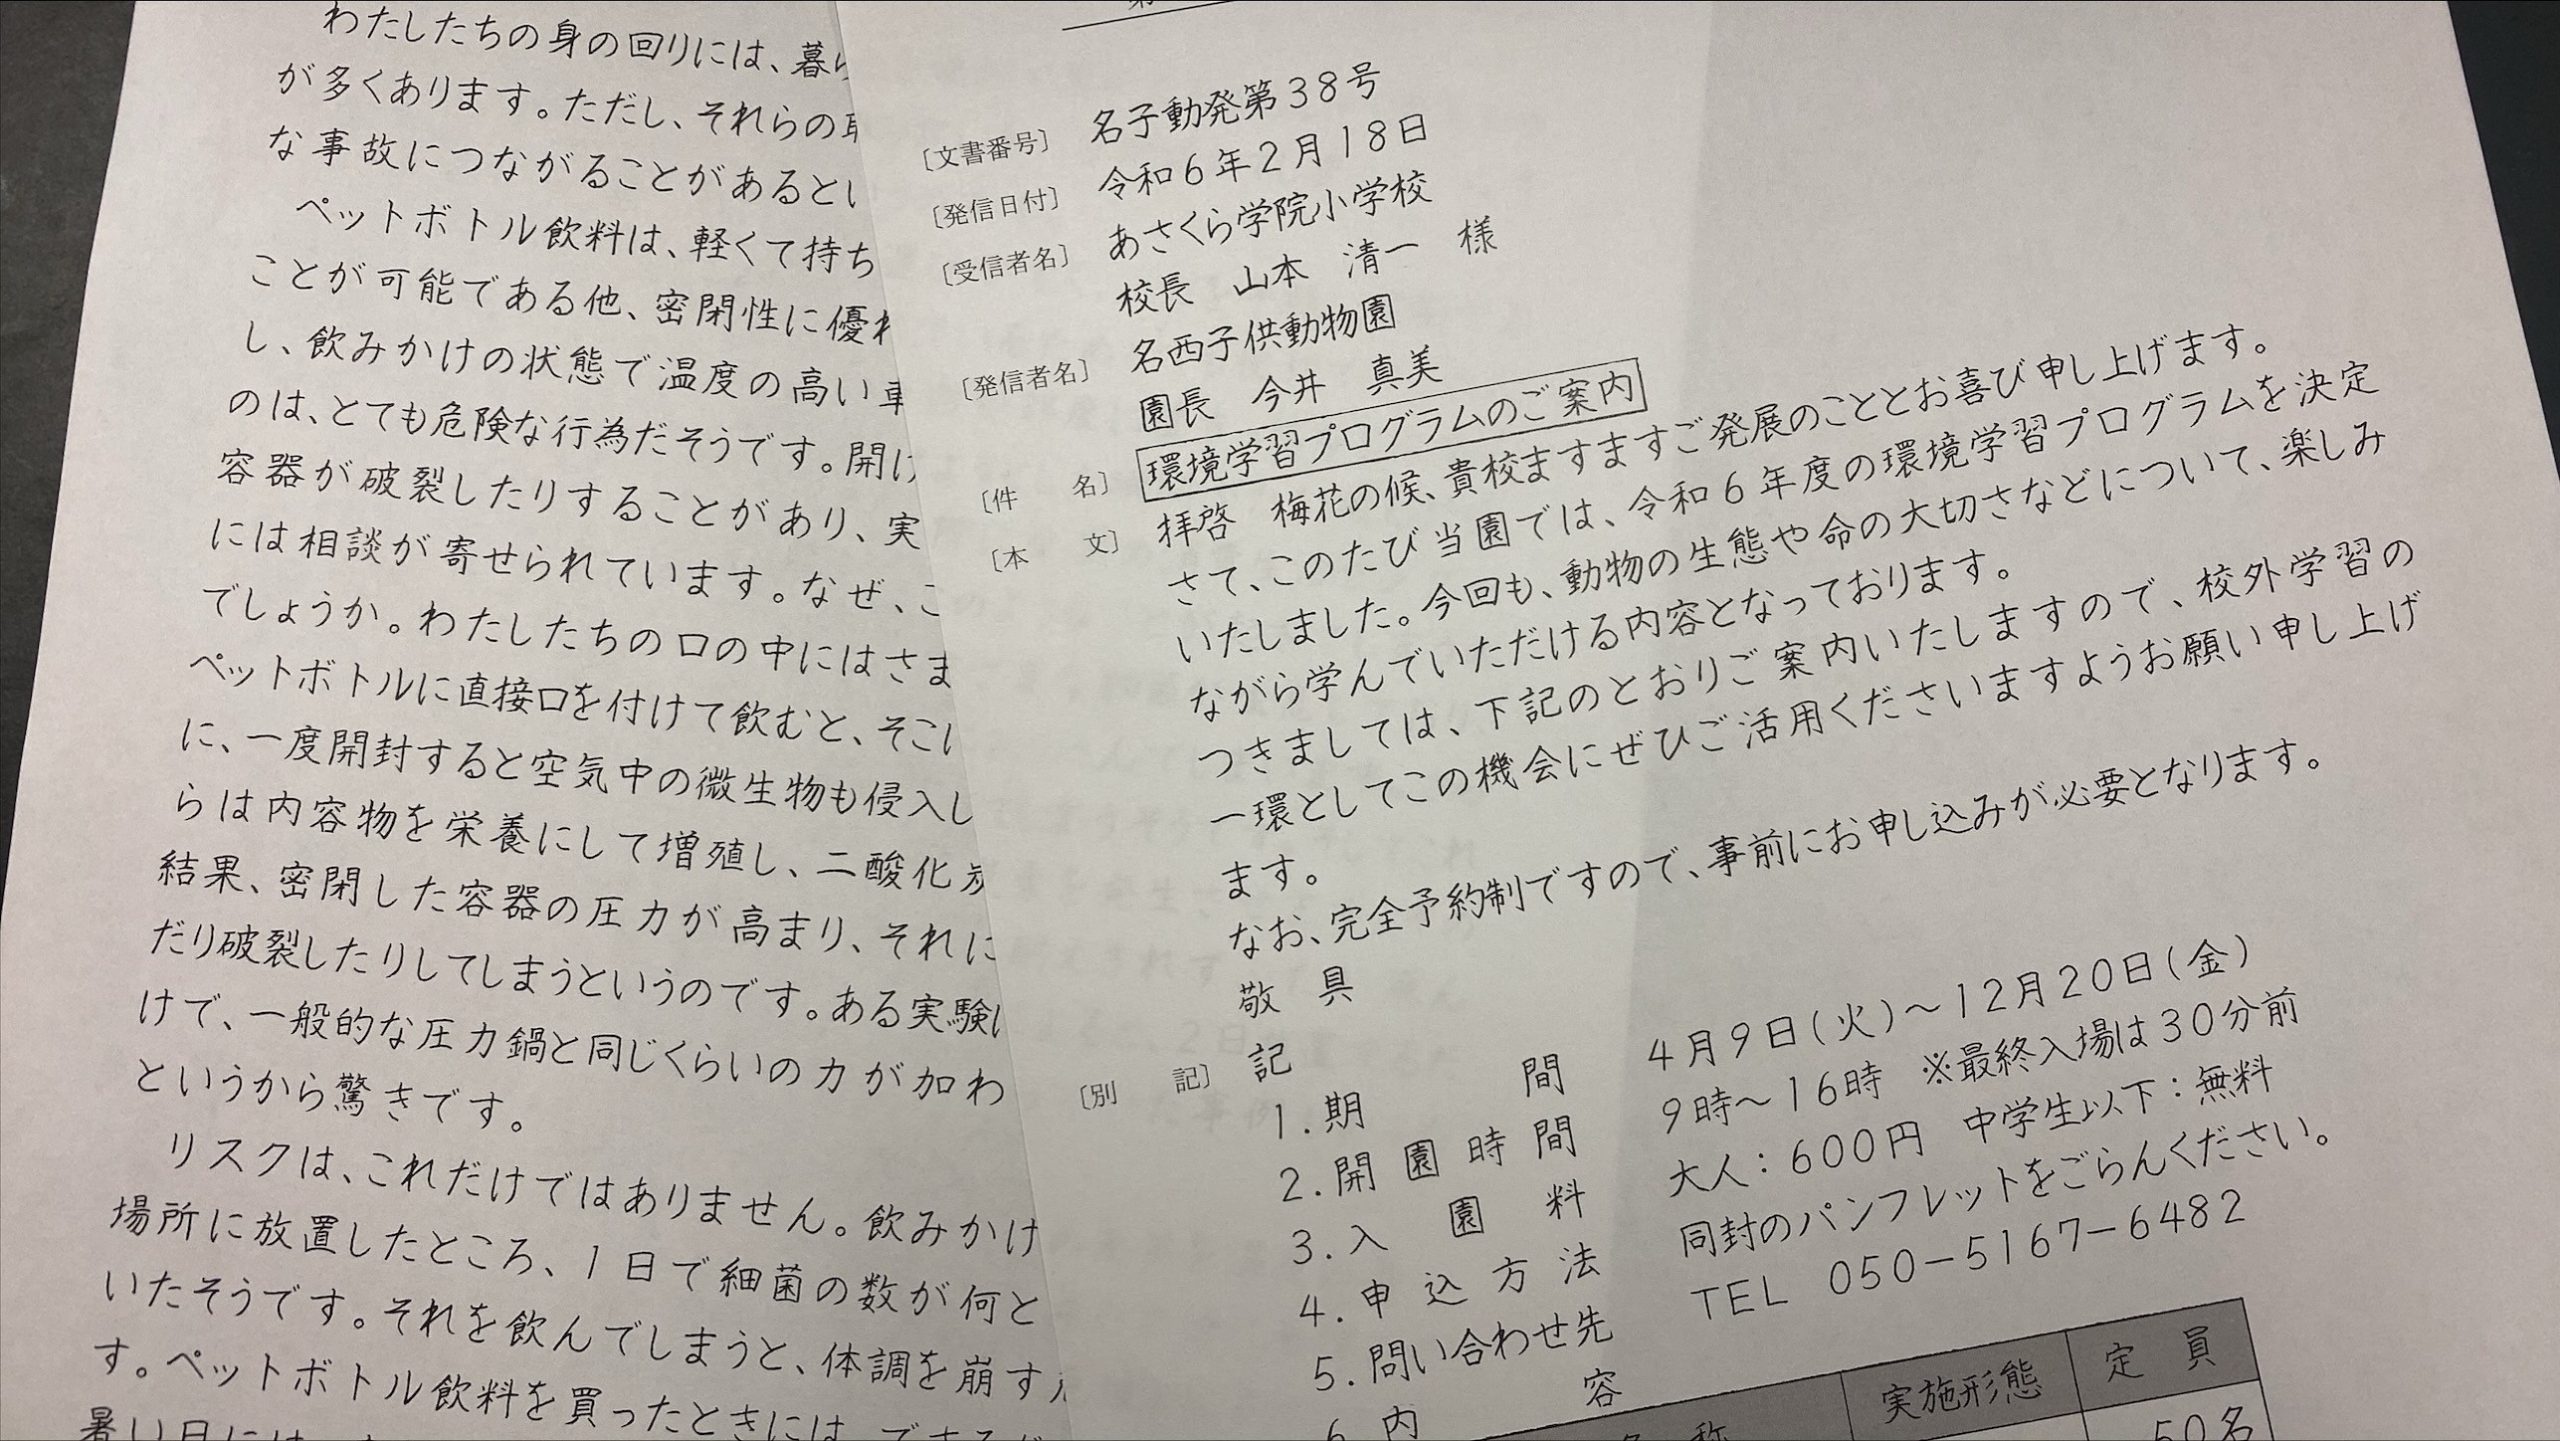 わたしたちの身の回りには、暮
が多くあります。ただし、それらの
な事故につながることがあるとい
ペットボトル飲料は、軽くて持ち
ことが可能である他、密閉性に優れ
し、飲みかけの状態で温度の高い車
のは、とても危険な行為だそうです。開け
容器が破裂したりすることがあり、実
には相談が寄せられています。なぜ、こ
でしょうか。わたしたちの口の中にはさま
ペットボトルに直接口を付けて飲むと、そこ
に、一度開封すると空気中の微生物も侵入し
らは内容物を栄養にして増殖し、二酸化炭
結果、密閉した容器の圧力が高まり、それに
だり破裂したりしてしまうというのです。ある実験
けで、一般的な圧力鍋と同じくらいの力が加わ
というから驚きです。
リスクは、これだけではありません。飲みかけ
場所に放置したところ、1日で細菌の数が何と
いたそうです。それを飲んでしまうと、体調を崩す
す。ペットボトル飲料を買ったときには、できるだ
暑い日には
〔文書番号〕 名子動発第38号
〔発信日付〕 令和6年2月18日
〔受信者名〕 あさくら学院小学校
校長 山本 清一 様
〔発信者名〕 名西子供動物園
園長 今井 真美
〔件 名〕 環境学習プログラムのご案内
〔本 文〕 拝啓 梅花の候、貴校ますますご発展のこととお喜び申し上げます。
さて、このたび当園では、令和6年度の環境学習プログラムを決定
いたしました。今回も、動物の生態や命の大切さなどについて、楽しみ
ながら学んでいただける内容となっております。
つきましては、下記のとおりご案内いたしますので、校外学習の
一環としてこの機会にぜひご活用くださいますようお願い申し上げ
ます。
なお、完全予約制ですので、事前にお申し込みが必要となります。
敬 具
〔別 記〕 記
1.期 間 4月9日(火)～12月20日(金)
2.開園時間 9時～16時 ※最終入場は30分前
3.入園料 大人：600円 中学生以下：無料
4.申込方法 同封のパンフレットをごらんください。
5.問い合わせ先 TEL 050-5167-6482
6 内 容
名 称 実施形態 定 員
50名